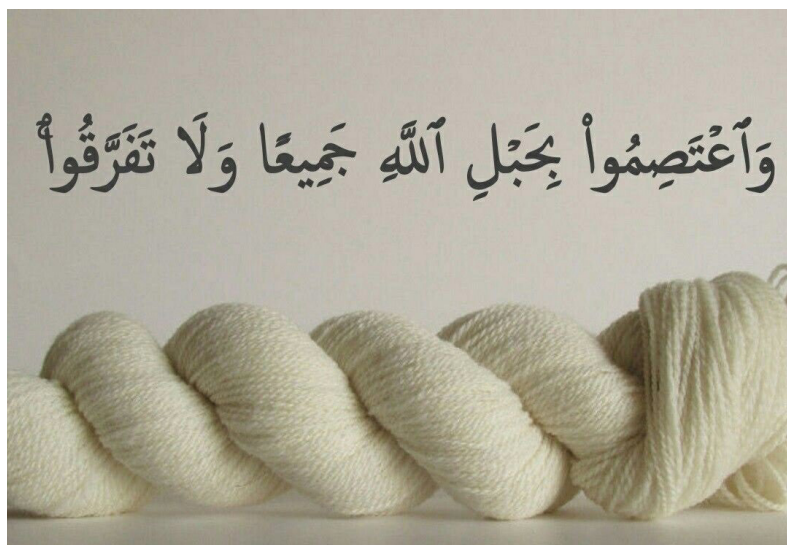 وَٱعْتَصِمُوا۟ بِحَبْلِ ٱللَّهِ جَمِيعًا وَلَا تَفَرَّقُوا۟ ۚ